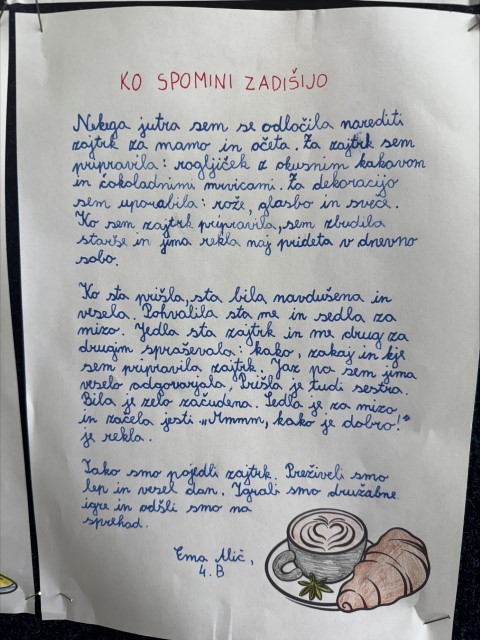 KO SPOMINI ZADIŠIJO
Nekega jutra sem se odločila narediti
zajtrk za mamo in očeta. Za zajtrk sem
pripravila: rogljiček z okusnim kakavom
in čokoladnimi mrvicami. Za dekoracijo
sem uporabila: rože, glasbo in sveče.
Ko sem zajtrk pripravila, sem zbudila
starše in jima rekla naj prideta v dnevno
sobo.
Ko sta prišla, sta bila navdušena in
vesela. Pohvalila sta me in sedla za
mizo. Jedla sta zajtrk in me drug za
drugim spraševala: kako, zakaj in kje
sem pripravila zajtrk. Jaz pa sem jima
veselo odgovarjala. Prišla je tudi sestra.
Bila je zelo začudena. Sedla je za mizo
in začela jesti „Mmmm, kako je dobro!“
je rekla.
Tako smo pojedli zajtrk. Preživeli smo
lep in vesel dan. Igrali smo družabne
igre in odšli smo na
sprehod.
Ema Alič,
4. B